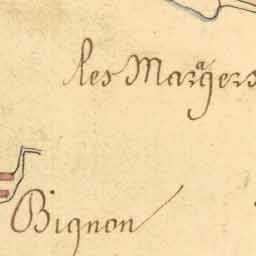 les Margers
Bignon